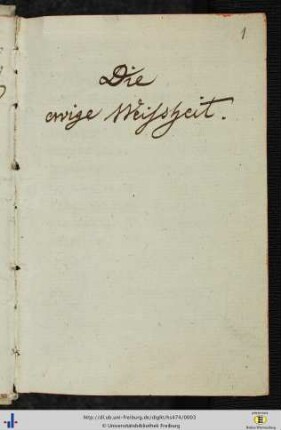 1
Die
ewige Weisheit.
http://dl.ub.uni-freiburg.de/diglit/hs474/0003
© Universitätsbibliothek Freiburg